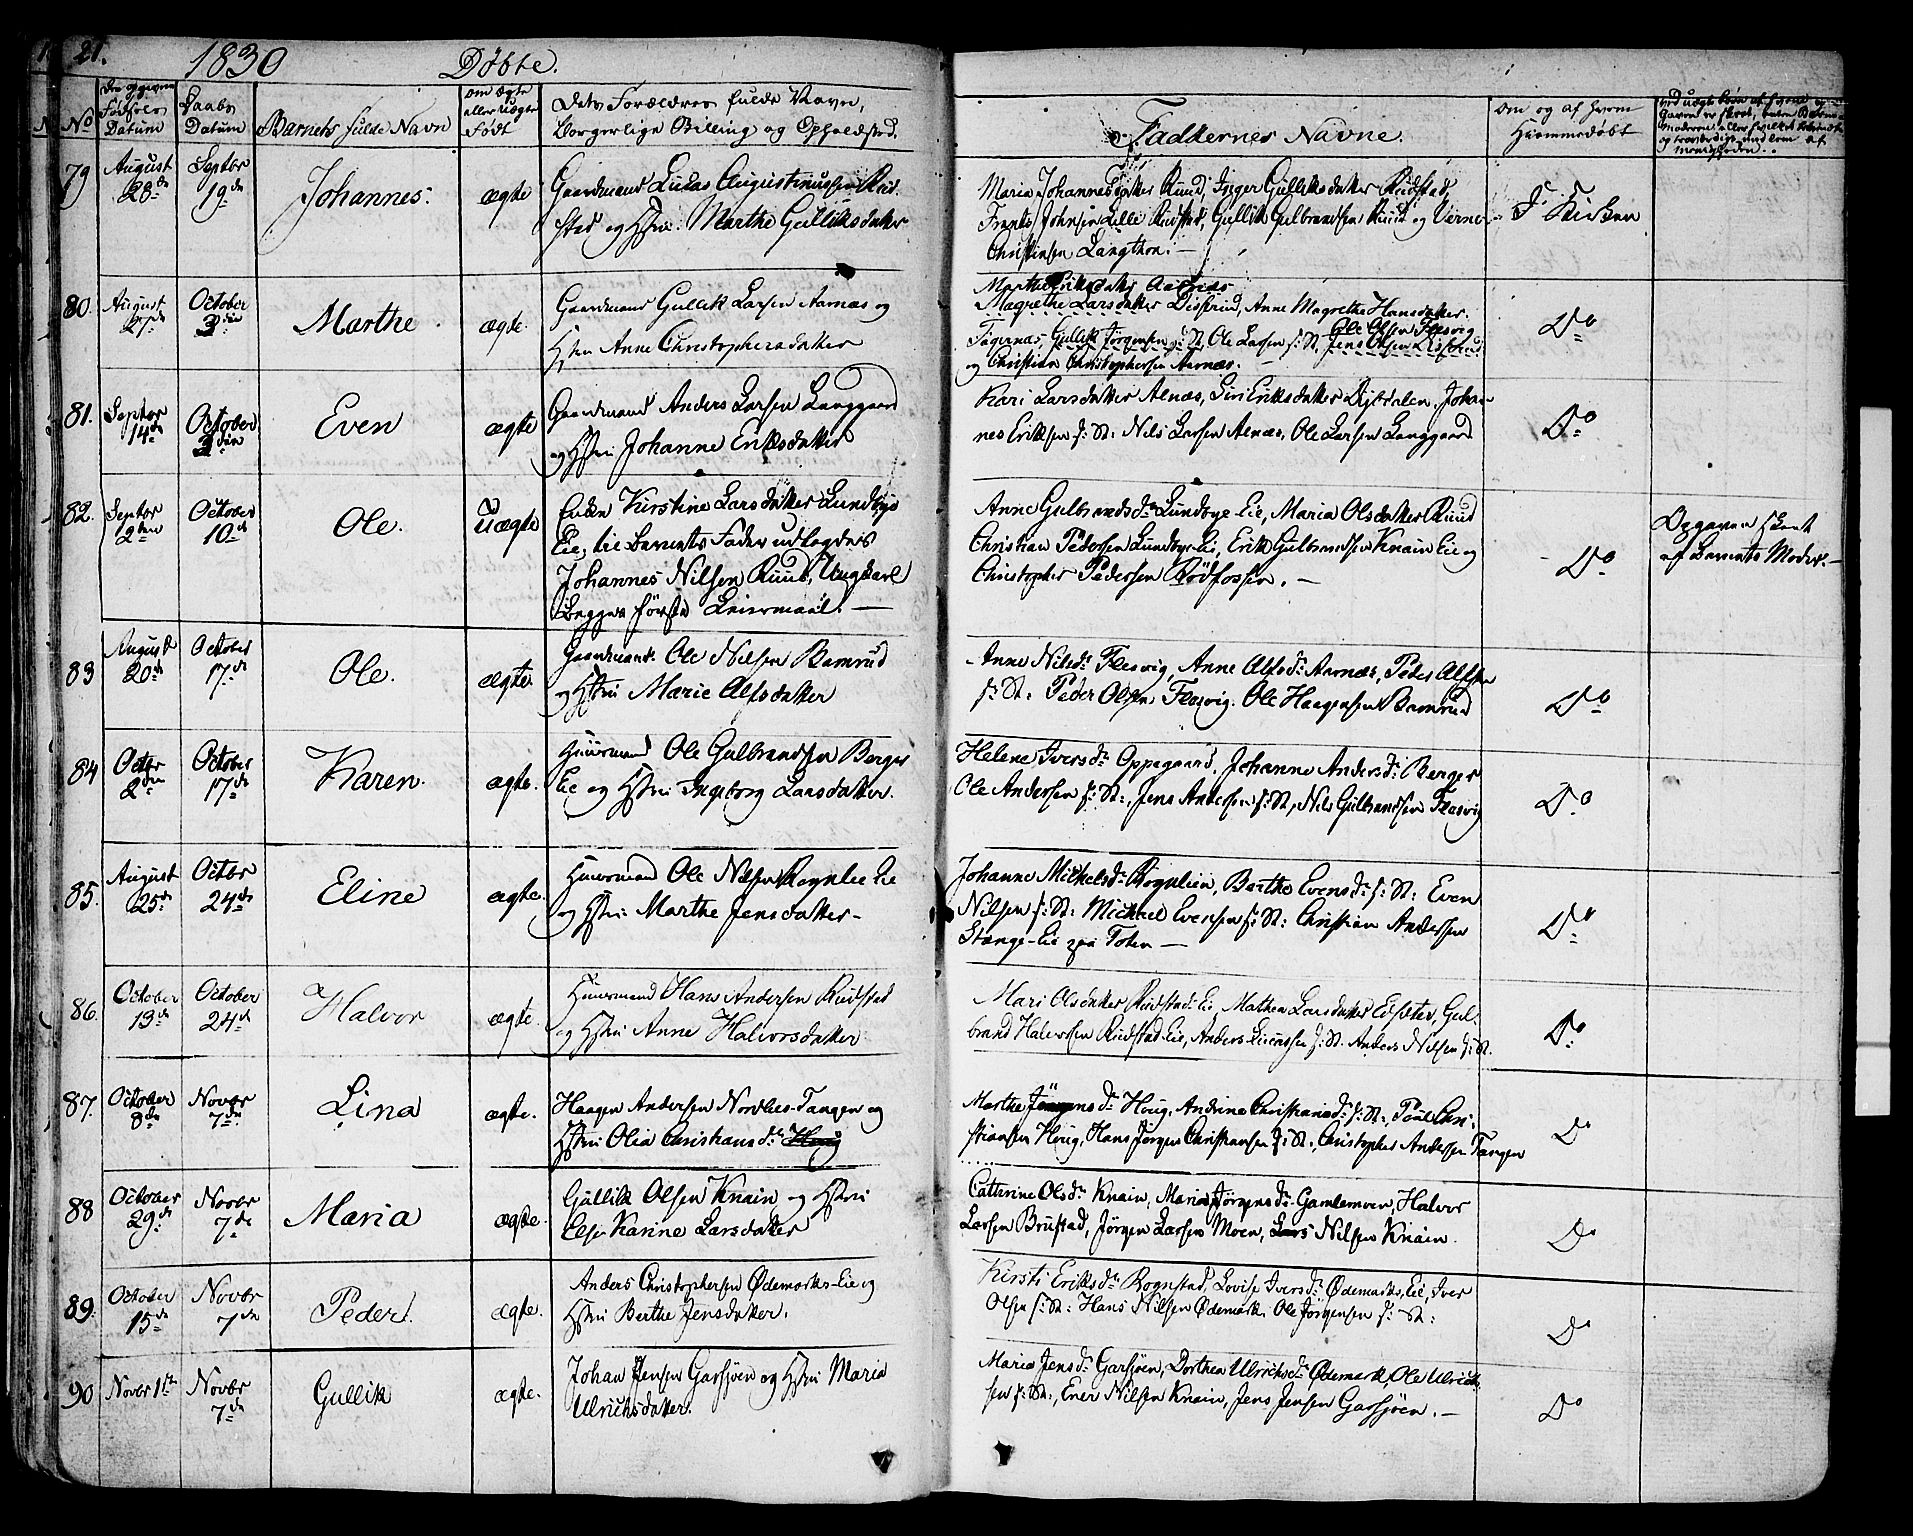 21.
1830
Døbte.
No
Den opgivne
Fødsels
Datum
Daabs
Datum
Barnets fulde Navn
om ægte
eller uægte
Født
Dets Forældres fulde Navne,
borgerlige Stilling og Opholdsted.
Faddernes Navne.
Om og af hvem
Hiemmedøbt
79
August
28de
Septbr
19de
Johannes.
ægte
Gaardmand Lucas Augustinussen Rud-
stad og Hstrue Marthe Gulliksdatter
Maria Johannesdatter Ruud, Inger Gulliksdatter Rudstad,
Frants Johnsen Lille Rudstad, Gullik Gulbrandsen Ruud og Verner
Christensen Langthon. —
I Kirken
80.
August
27de
October
3die
Marthe
ægte.
Gaardmand Gullik Larsen Aarnæs og
Hstrue Anne Christophersdatter
Marthe Eriksdatter Aarnæs
Magrethe Larsdatter Disserud, Anne Magrethe Hansdatter
Ole Olsen Flesvig
Tøgernæs, Gullik Jørgensen s: St, Ole Larsen s: St, Jens Olsen Disserud
og Christian Christophersen Aarnæs.
Do
81.
Septbr
14de
October
3die
Even
ægte
Gaardmand Anders Larsen Langgaard
og Hstrue Johanne Eriksdatter
Kari Larsdatter Alnæs, Siri Eriksdatter Dybdalen, Johan-
nes Eriksen s: St: Nils Larsen Alnæs, Ole Larsen Langgaard
Do
82.
Septbr
2den
October
10de
Ole.
Uægte
Enken Kirstine Larsdatter Lundbye
Eie, til Barnets Fader udlagdes
Johannes Nilsen Ruud, Ungkarl
Begges første Leiermaal. —
Anne Gulbrandsdr Lundbye-Eie, Maria Olsdatter Ruud
Christian Pedersen Lundbye-Eie, Erik Gulbrandsen Knain Eie og
Christopher Pedersen Rødfossen. —
Do
Opgaven skeet
af Barnets Moder. —
83
August
20de
October
17de
Ole.
ægte.
Gaardmand Ole Nilsen Bamrud
og Hstrue Marie Alfsdatter
Anne Nilsdr Flesvig, Anne Alfsdr Aarnæs, Peder Alfsen
s: St: Peder Olsen Flesvig. Ole Haagensen Bamrud
Do
84
Octbr
2den
October
17de
Karen.
ægte.
Huusmand Ole Gulbrandsen Berger
Eie og Hstrue Ingeborg Larsdatter.
Helene Iversdr Oppegaard, Johanne Andersdr Berger
Ole Andersen s: St:, Jens Andersen s: St, Nils Gulbrandsen Flesvig
Do
85.
August
25de
Octbr
24de
Eline
ægte.
Huusmand Ole Nilsen Rognlie Eie
og Hstrue Marthe Jensdatter –
Johanne Mickelsdr Rognlien, Berthe Evensdr s: St: Even
Nilsen s: St: Mickael Evensen s: St: Christian Andersen
Stange-Eie paa Toten —
Do
86.
October
13de
October
24de
Halvor
ægte.
Huusmand Hans Andersen Rudstad
og Hstrue Anne Halvorsdatter
Mari Olsdatter Rudstad-Eie, Mathea Larsdatter Eidsæter, Gul-
brand Halvorsen Rudstad-Eie, Anders s: St: Anders Nilsen s: St.
Do
87.
October
8de
Novbr
7de
Lina
ægte.
Haagen Andersen Nordbes-Tangen og
Hstrue Olia Christiansdr Houg
Marthe Jørgensdr Houg, Andrine Christiansdr s: St:, Poul Chri-
stiansen Houg, Hans Jørgen Christiansen s: St:, Christopher Andersen Tangen
Do
88
October
29de
Novbr
7de
Maria
ægte.
Gullik Olsen Knain og Hstrue
Else Karine Larsdatter
Cathrine Olsdr Knain, Maria Jørgensdr Gamlemoen, Halvor
Larsen Brustad, Jørgen Larsen Moen, Lars Nilsen Knain.
Do
89.
October
15de
Novbr
7de
Peder.
ægte.
Anders Christophersen Ødemarks-Eie og
Hstrue Berthe Jensdatter.
Kirsti Eriksdr Rognstad, Lovise Iversdr Ødemarks Eie, Iver
Olsen s: St: Hans Nilsen Ødemark, Ole Jørgensen s: St:
Do
90
Novbr 1ste
Novbr
7de
Gullik
ægte.
Johan Jensen Garsjøen og Hstrue Maria
Ulrichsdatter.
Maria Jensdr Garsjøen, Dorthea Ulrichsdr Ødemark, Ole Ulrich-
sen s: St:, Ener Nilsen Knain, Jens Jensen Garsjøen. —
Do